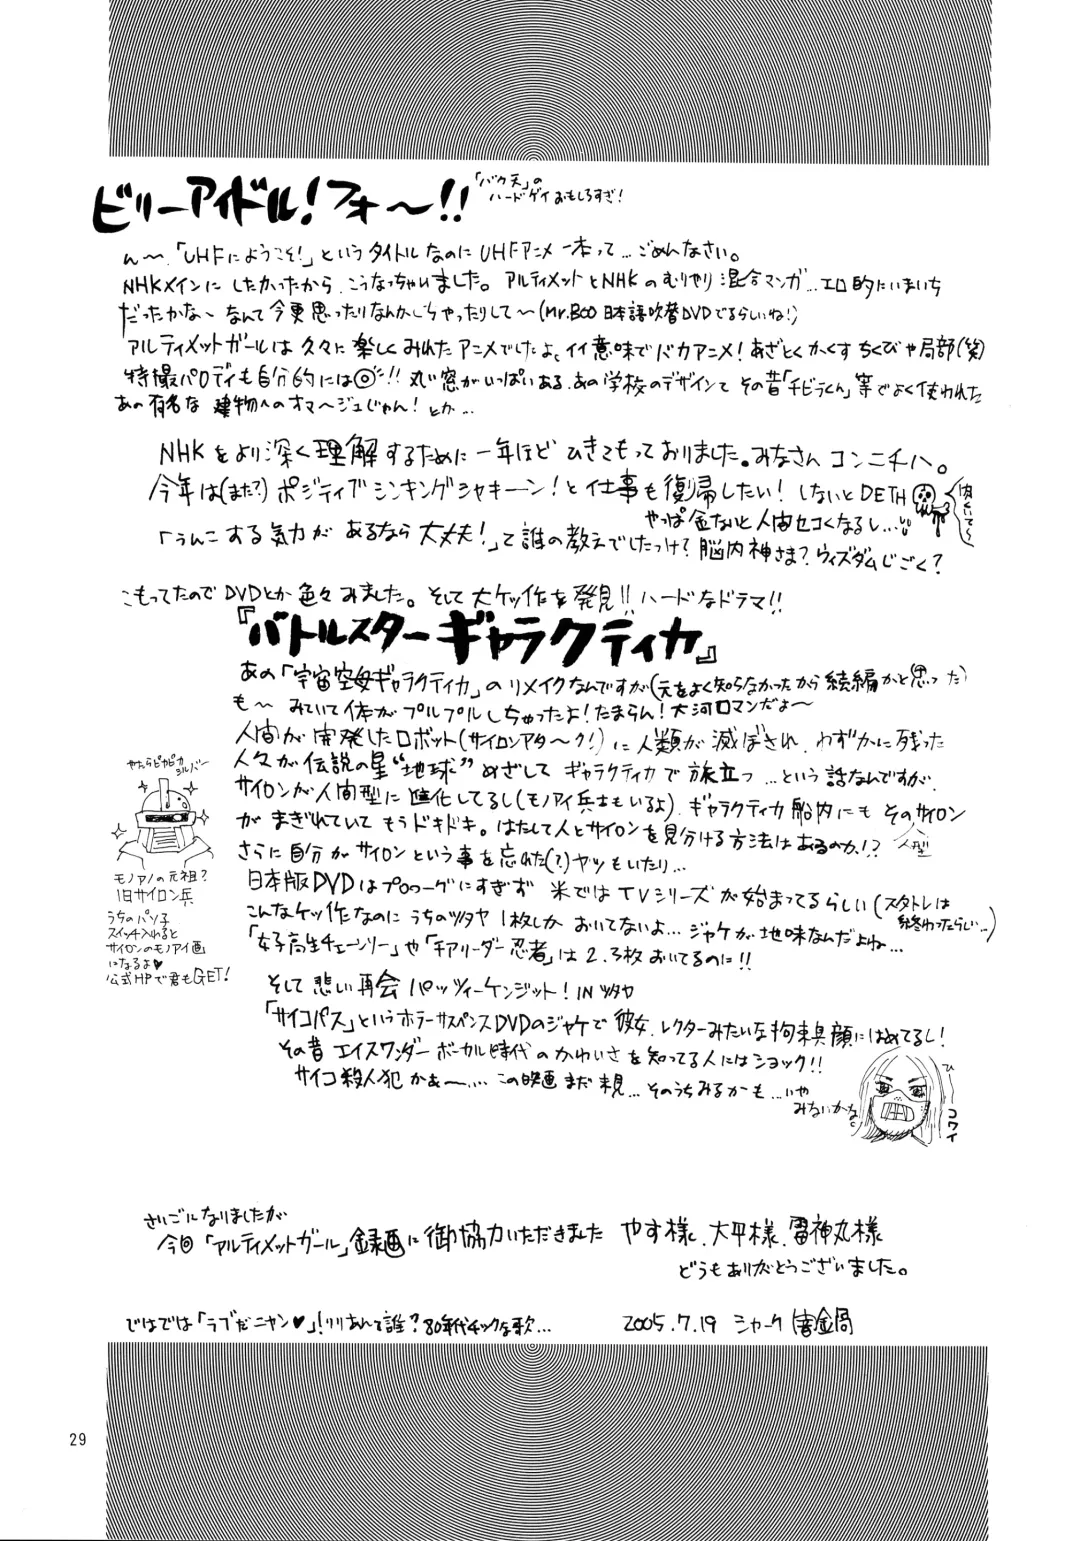 ビリーアイドル!フォ〜!!
「バク天」の
ハードゲイおもしろすぎ!
ん〜、「UHFにようこそ!」というタイトルなのにUHFアニメ一本って…ごめんなさい。
NHKメインにしたかったから、こうなっちゃいました。アルティメットとNHKのむりやり混合マンガ…エロ的にいまいち
だったかな〜なんて今更思ったりなんかしちゃったりして〜(Mr.BOO日本語吹替DVDでるらしいね!)
アルティメットガールは久々に楽しくみれたアニメでしたよ、イイ意味でバカアニメ!あざとくかくすちくびや局部(笑)
特撮パロディも自分的には◎!!丸い窓がいっぱいある、あの学校のデザインてその昔「チビラくん」等でよく使われた
あの有名な建物へのオマージュじゃん!とか…
NHKをより深く理解するために一年ほどひきこもっておりました。みなさんコンニチハ。
今年は(また?)ポジティブシンキングシャキーン!と仕事も復帰したい!しないとDETH
やっぱ金ないと人間セコくなるし…
「うんこする気力があるなら大丈夫!」て誰の教えでしたっけ?脳内神さま?ウィズダムじごく?
こもってたのでDVDとか色々みました。そして大ケッ作を発見!!ハードなドラマ!!
『バトルスターギャラクティカ』
あの「宇宙空母ギャラクティカ」のリメイクなんですが(元をよく知らなかったから続編かと思った)
も〜みていて体がプルプルしちゃったよ!たまらん!大河ロマンだよ〜
人間が開発したロボット(サイロンアタ〜ク!)に人類が滅ぼされ、わずかに残った
人々が伝説の星"地球"めざしてギャラクティカで旅立つ…という話なんですが、
サイロンが人間型に進化してるし(モノアイ兵士もいるよ)、ギャラクティカ船内にもそのサイロン
人型
がまぎれていてもうドキドキ。はたして人とサイロンを見分ける方法はあるのか!?
さらに自分がサイロンという事を忘れた(?)ヤツもいたり…
日本版DVDはプロローグにすぎず米ではTVシリーズが始まってるらしい(スタトレは
終わったらしい…)
こんなケッ作なのにうちのツタヤ1枚しかおいてないよ…ジャケが地味なんだよね…
「女子高生チェーンソー」や「チアリーダー忍者」は2、3枚おいてるのに!!
やたらピカピカ
シルバー
モノアイの元祖?
旧サイロン兵
うちのパソ子
スイッチ入れると
サイロンのモノアイ画
になるよ♥
公式HPで君もGET!
そして悲しい再会パッツィーケンジット!INツタヤ
「サイコパス」というホラーサスペンスDVDのジャケで彼女、レクターみたいな拘束具顔にはめてるし!
その昔エイスワンダーボーカル時代のかわいさを知ってる人にはショック!!
サイコ殺人犯かぁ〜…この映画まだ未見…そのうちみるかも…いや
みないかな。
ひ〜コワイ
さいごになりましたが
今回「アルティメットガール」録画に御協力いただきました やす様、大平様、雷神丸様
どうもありがとうございました。
ではでは「ラブだニャン♥」!りりあんて誰?80年代チックな歌…
2005.7.19 シャーク
29